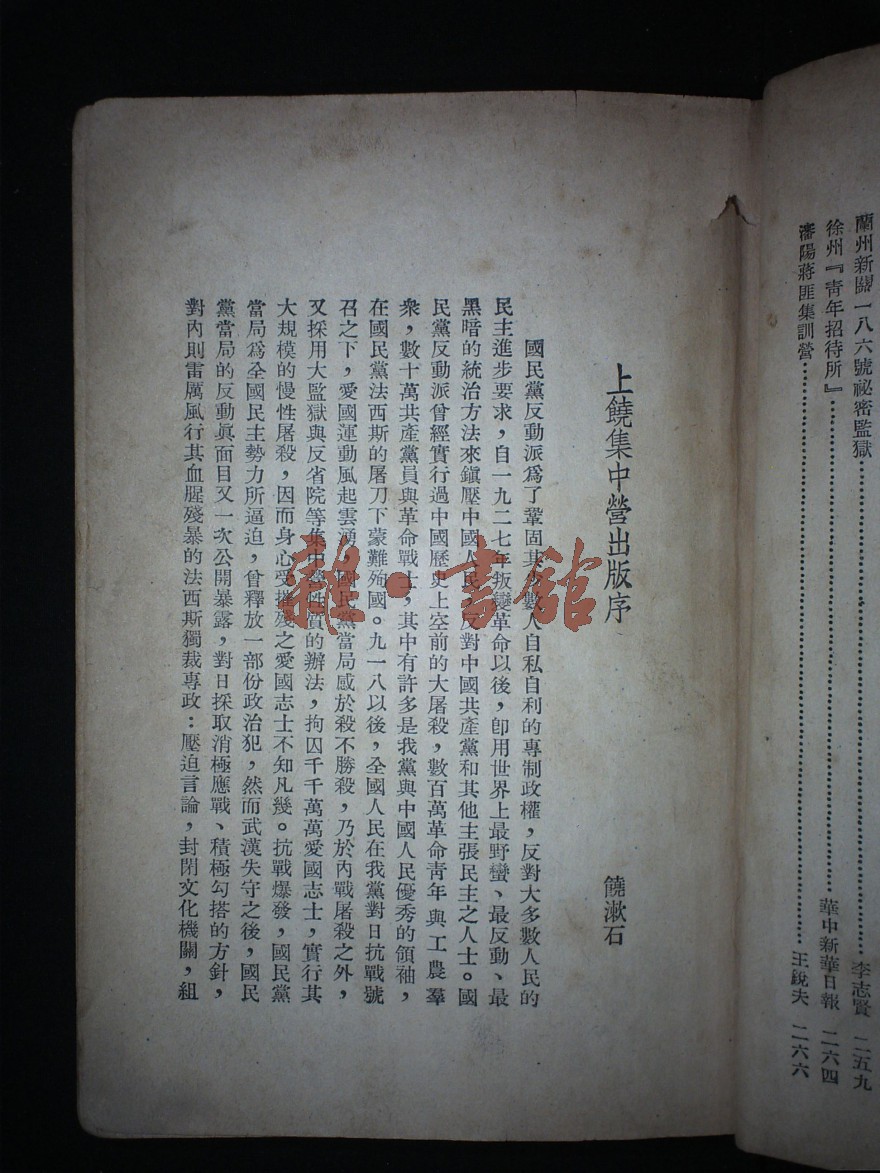 蘭州新關一八六號祕密監獄……………………李志賢 二五九
徐州『靑年招待所』……………………華中新華日報 二六四
瀋陽蔣匪集訓營……………………王銳夫 二六六
上饒集中營出版序
饒漱石
國民黨反動派爲了鞏固其少數人自私自利的專制政權，反對大多數人民的
民主進步要求，自一九二七年叛變革命以後，卽用世界上最野蠻、最反動、最
黑暗的統治方法來鎭壓中國人民，反對中國共產黨和其他主張民主之人士。國
民黨反動派曾經實行過中國歷史上空前的大屠殺，數百萬革命靑年與工農羣
衆，數十萬共產黨員與革命戰士，其中有許多是我黨與中國人民優秀的領袖，
在國民黨法西斯的屠刀下蒙難殉國。九一八以後，全國人民在我黨對日抗戰號
召之下，愛國運動風起雲湧，國民黨當局感於殺不勝殺，乃於內戰屠殺之外，
又採用大監獄與反省院等集中營性質的辦法，拘囚千千萬萬愛國志士，實行其
大規模的慢性屠殺，因而身心受摧殘之愛國志士不知凡幾。抗戰爆發，國民黨
當局爲全國民主勢力所逼迫，曾釋放一部份政治犯，然而武漢失守之後，國民
黨當局的反動眞面目又一次公開暴露，對日採取消極應戰、積極勾搭的方針，
對內則雷厲風行其血腥殘暴的法西斯獨裁專政：壓迫言論，封閉文化機關，組
雜·書館